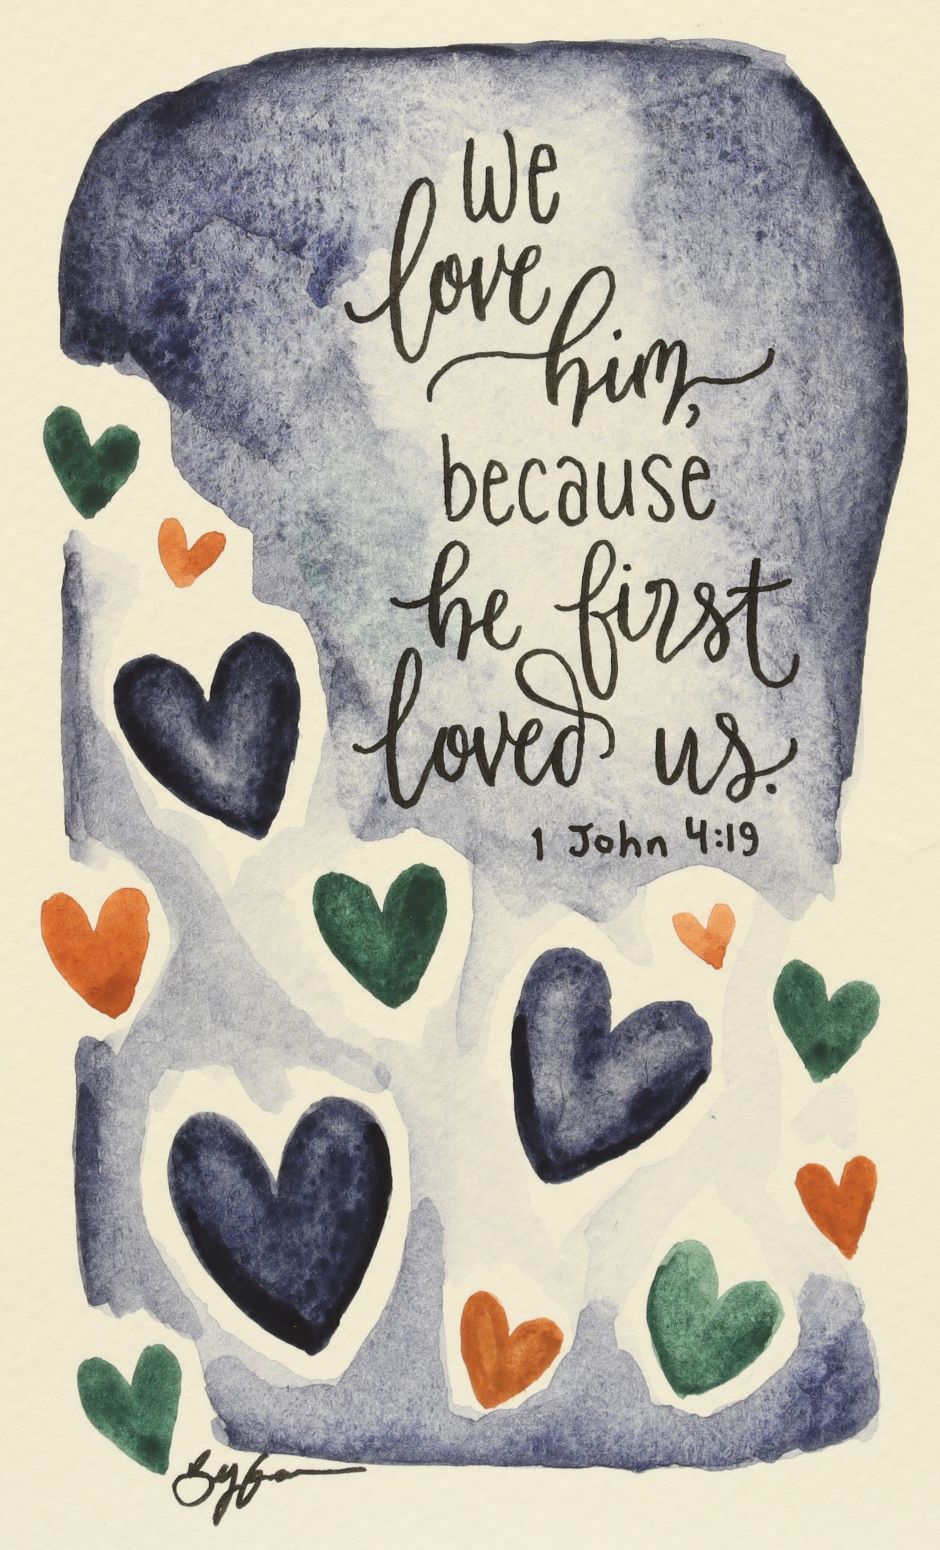 we
love
him,
because
he first
loved us.
1 John 4:19